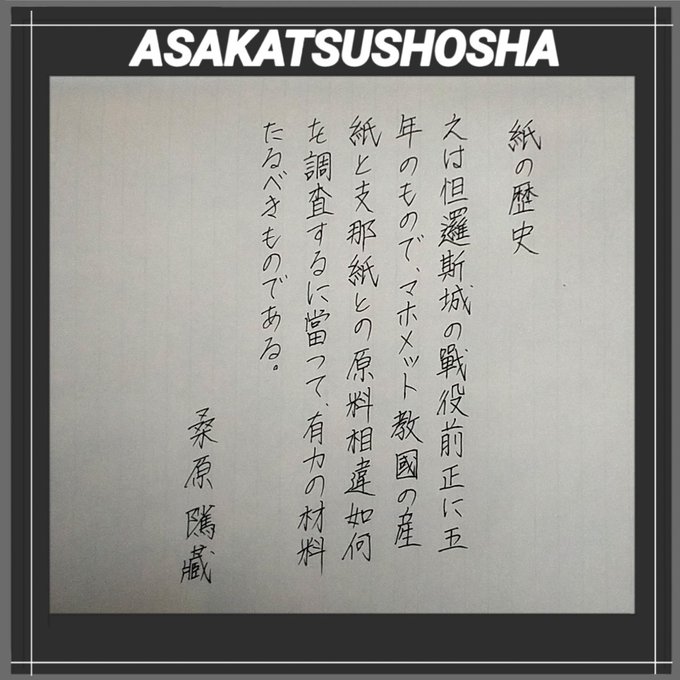 ASAKATSUSHOSHA
紙の歴史
之は怛邏斯城の戰役前正に五
年のもので、マホメット教國の産
紙と支那紙との原料相違如何
を調査するに當って、有力の材料
たるべきものである。
桑原隲藏